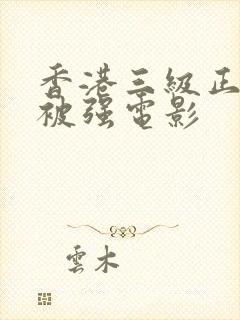 香港三級正
被强電影
雲木